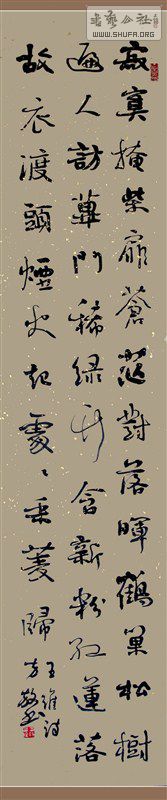 書藝公社
WWW.SHUFA.ORG
寂寞掩柴扉蒼茫對落暉鶴巢松樹
遍人訪蓽門稀綠竹含新粉紅蓮落
故衣渡頭煙火起處〻采菱歸
王維詩